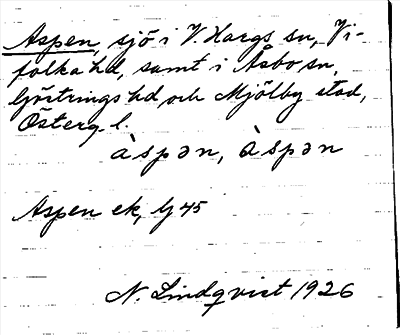 Aspen, sjö i V. Hargs sn, Vi-
folka hd, samt i Åsbo sn,
Göstrings hd och Mjölby stad,
Österg. l.
àspən, àspən
Aspen ek, bl 45
N. Lindqvist 1926